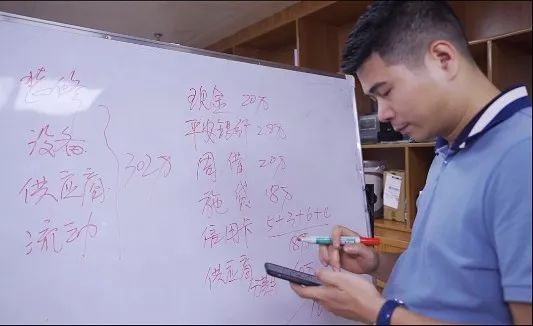 装修
设备
供应商
流动
302万
现金 20万
平安银行 29万
周借 20万
施贷 18万
信用卡 5+3+6+
供应商